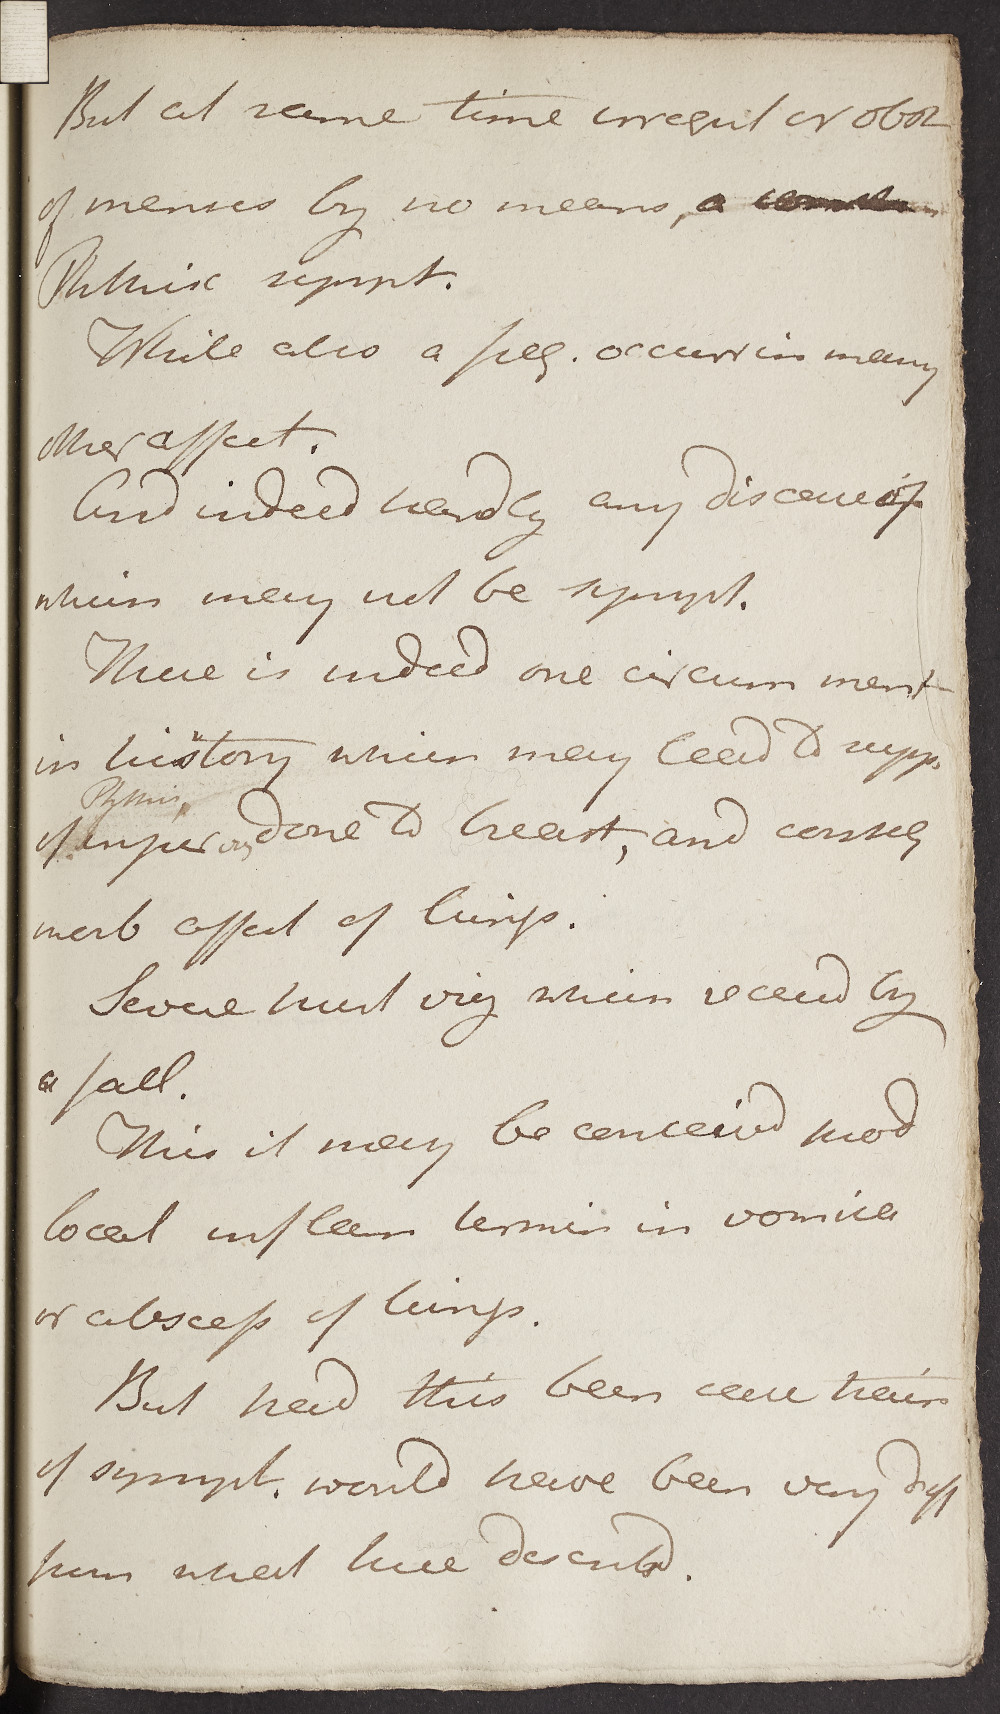 But at same time irregul or obst
of menses by no means, a
Phthisic sympt.
While also a freq. occurr in many
other affect.
And indeed hardly any disease of
which may not be sympt.
There is indeed one circum ment
in history which may lead to supp.
Phthis,
of injur done to breast, and conseq
morb affect of lungs.
Severe hurt viz which receivd by
a fall.
This it may be conceived prod
local inflam termin in vomica
or abscess of lungs.
But had this been case train
of sympt. would have been very diff
from what here describd.